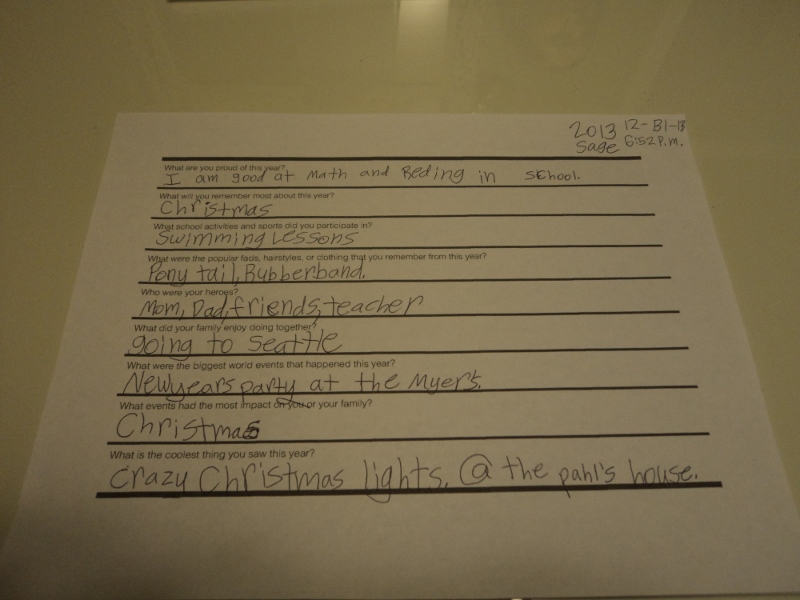 2013 12-31-13
Sage 6:52 P.m.
What are you proud of this year?
I am good at math and Reding in school.
What will you remember most about this year?
Christmas
What school activities and sports did you participate in?
Swimming Lessons
What were the popular fads, hairstyles, or clothing that you remember from this year?
Pony tail, Rubberband.
Who were your heroes?
Mom, Dad, friends, teacher
What did your family enjoy doing together?
going to Seattle
What were the biggest world events that happened this year?
Newyears party at the Myers.
What events had the most impact on you or your family?
Christmas
What is the coolest thing you saw this year?
crazy Christmas lights. @ the pahl's house.